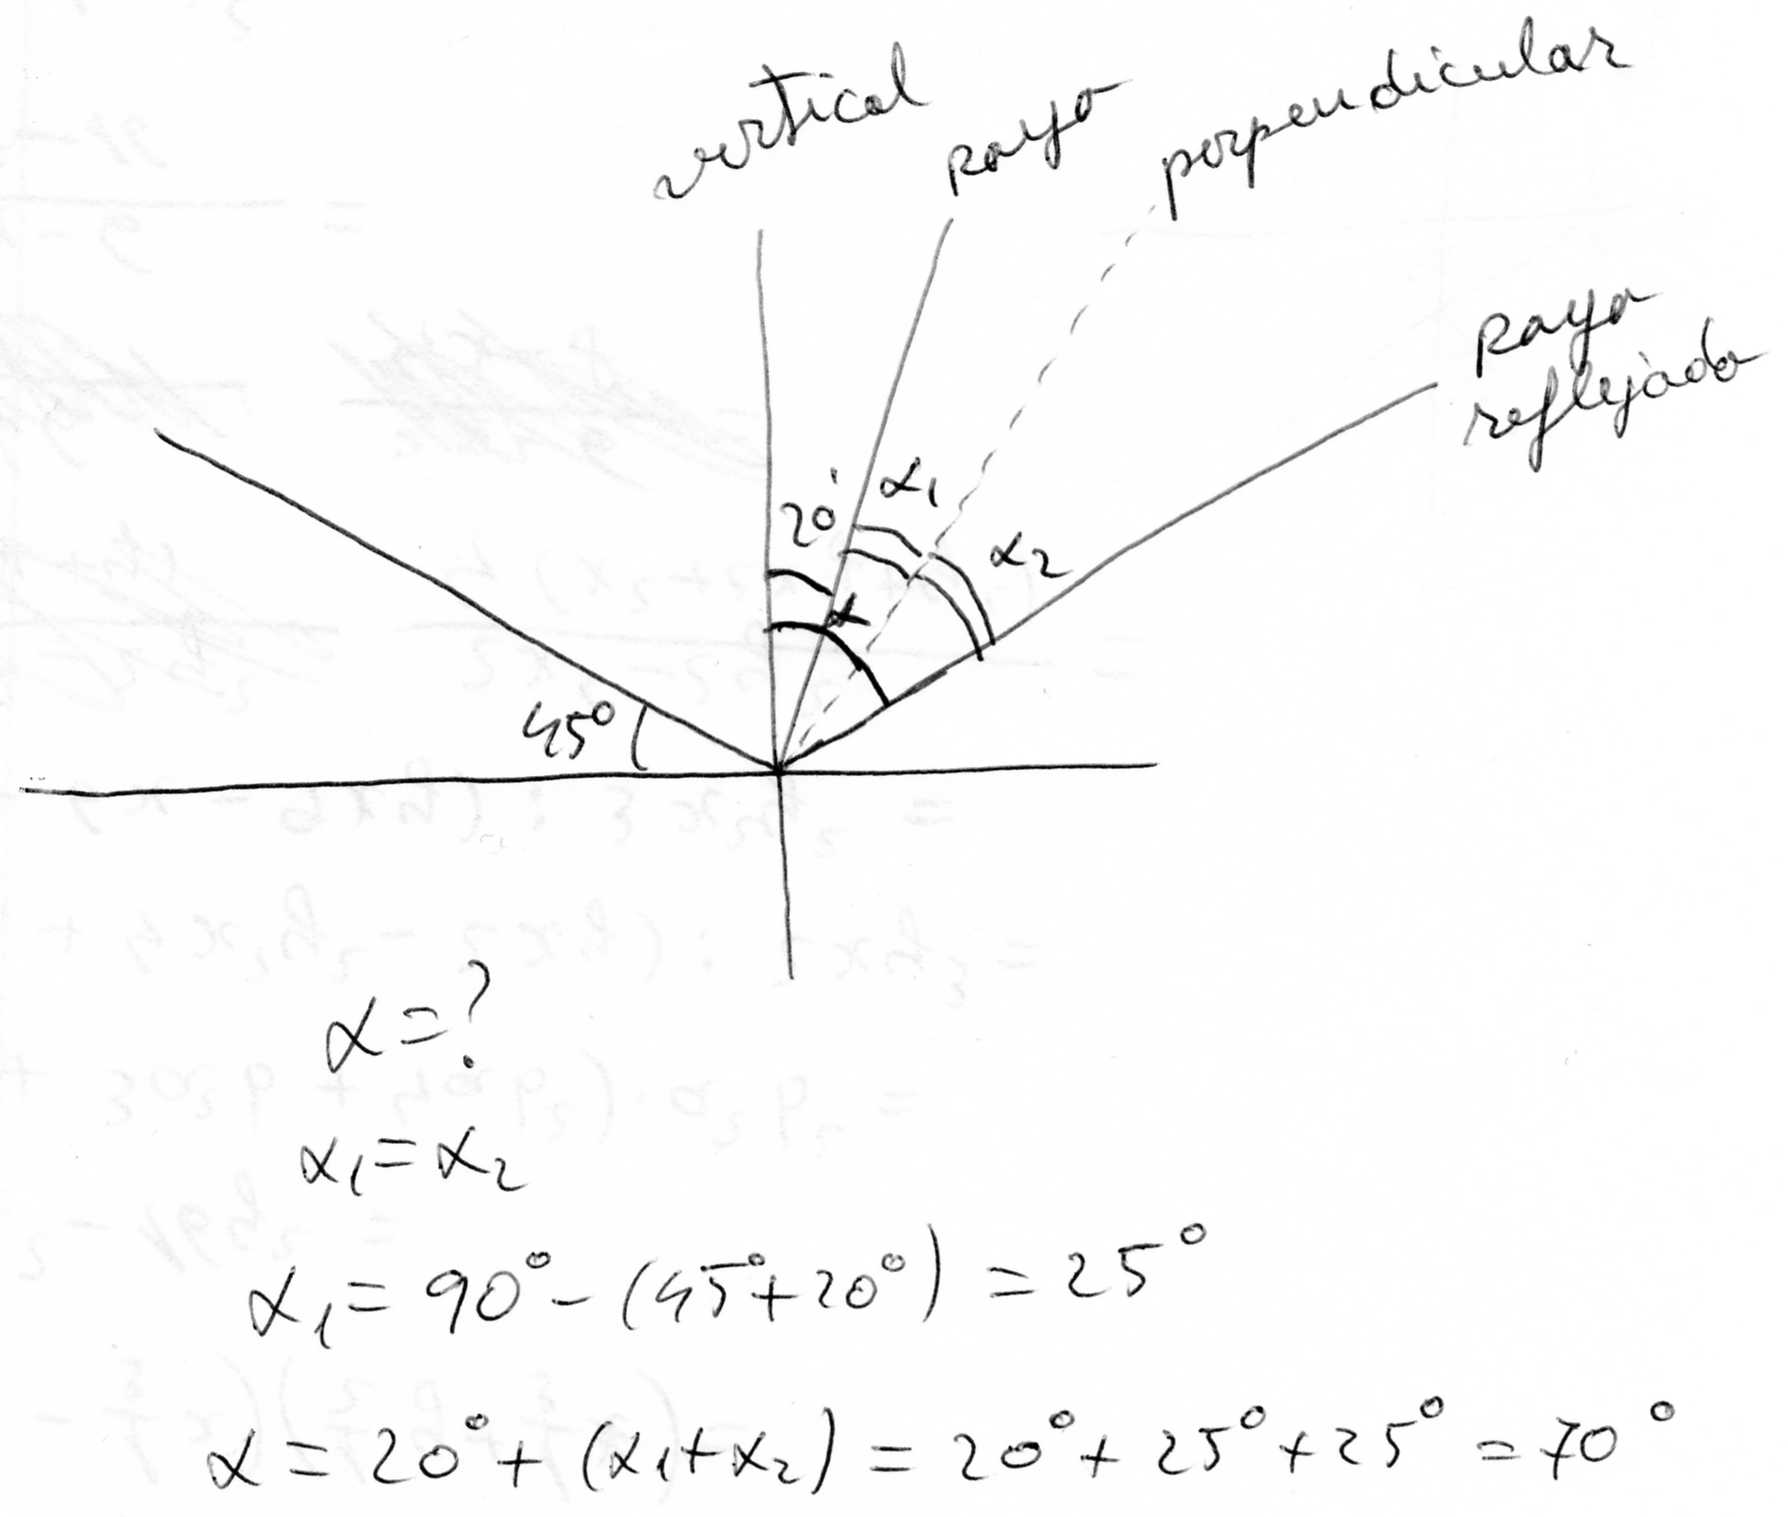 vertical
rayo
perpendicular
rayo
reflejado
20°
α₁
α₂
α
45°
α=?
α₁=α₂
α₁= 90°-(45°+20°) = 25°
α = 20°+ (α₁+α₂) = 20°+25°+25° = 70°